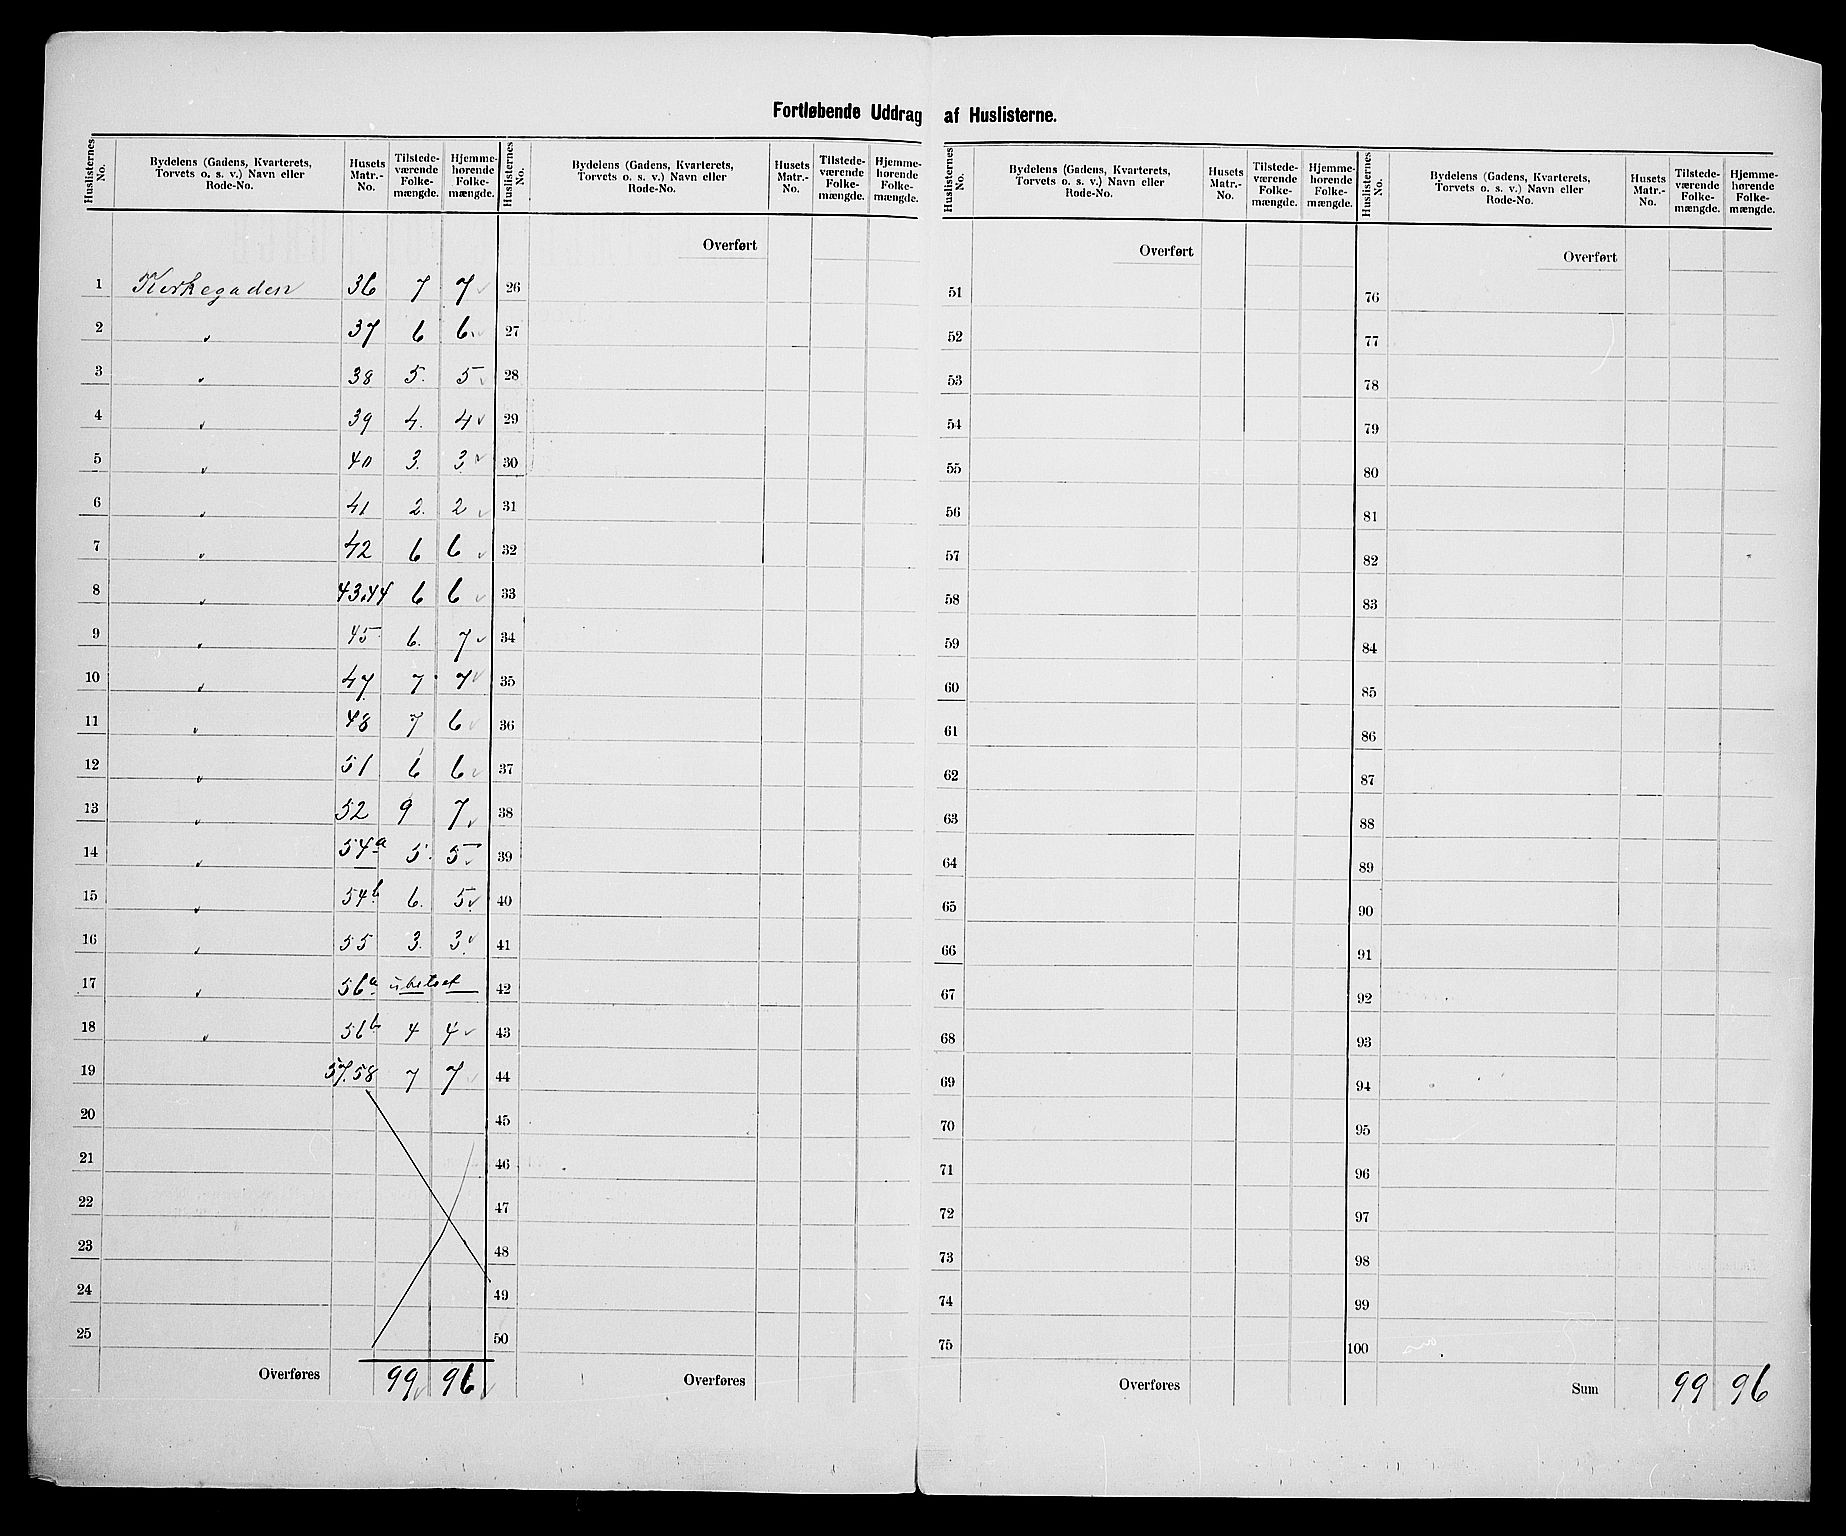 Fortløbende Uddrag af Huslisterne.
Huslisternes No. | Bydelens (Gadens, Kvarterets, Torvets o. s. v.) Navn eller Rode-No. | Husets Matr.-No. | Tilstedeværende Folkemængde. | Hjemmehørende Folkemængde.
Huslisternes No. | Bydelens (Gadens, Kvarterets, Torvets o. s. v.) Navn eller Rode-No. | Husets Matr.-No. | Tilstedeværende Folkemængde. | Hjemmehørende Folkemængde.
Huslisternes No. | Bydelens (Gadens, Kvarterets, Torvets o. s. v.) Navn eller Rode-No. | Husets Matr.-No. | Tilstedeværende Folkemængde. | Hjemmehørende Folkemængde.
Huslisternes No. | Bydelens (Gadens, Kvarterets, Torvets o. s. v.) Navn eller Rode-No. | Husets Matr.-No. | Tilstedeværende Folkemængde. | Hjemmehørende Folkemængde.
Overført Overført Overført
1 Kirkegaden 36 7 7 26 51 76
2 " 37 6 6. 27 52 77
3 " 38 5. 5 28 53 78
4 " 39 4. 4 29 54 79
5 " 40 3. 3 30 55 80
6 " 41 2. 2 31 56 81
7 " 42 6 6 32 57 82
8 " 43.44 6 6 33 58 83
9 " 45 6. 7 34 59 84
10 " 47 7 7 35 60 85
11 " 48 7 6 36 61 86
12 " 51 6 6 37 62 87
13 " 52 9 7 38 63 88
14 " 54a 5. 5 39 64 89
15 " 54b 6. 5 40 65 90
16 " 55 3. 3 41 66 91
17 " 56a ubetset 42 67 92
18 " 56b 4 4 43 68 93
19 57.58 7 7 44 69 94
20 45 70 95
21 46 71 96
22 47 72 97
23 48 73 98
24 49 74 99
25 50 75 100
Overføres 99 96 Overføres Overføres Sum 99 96